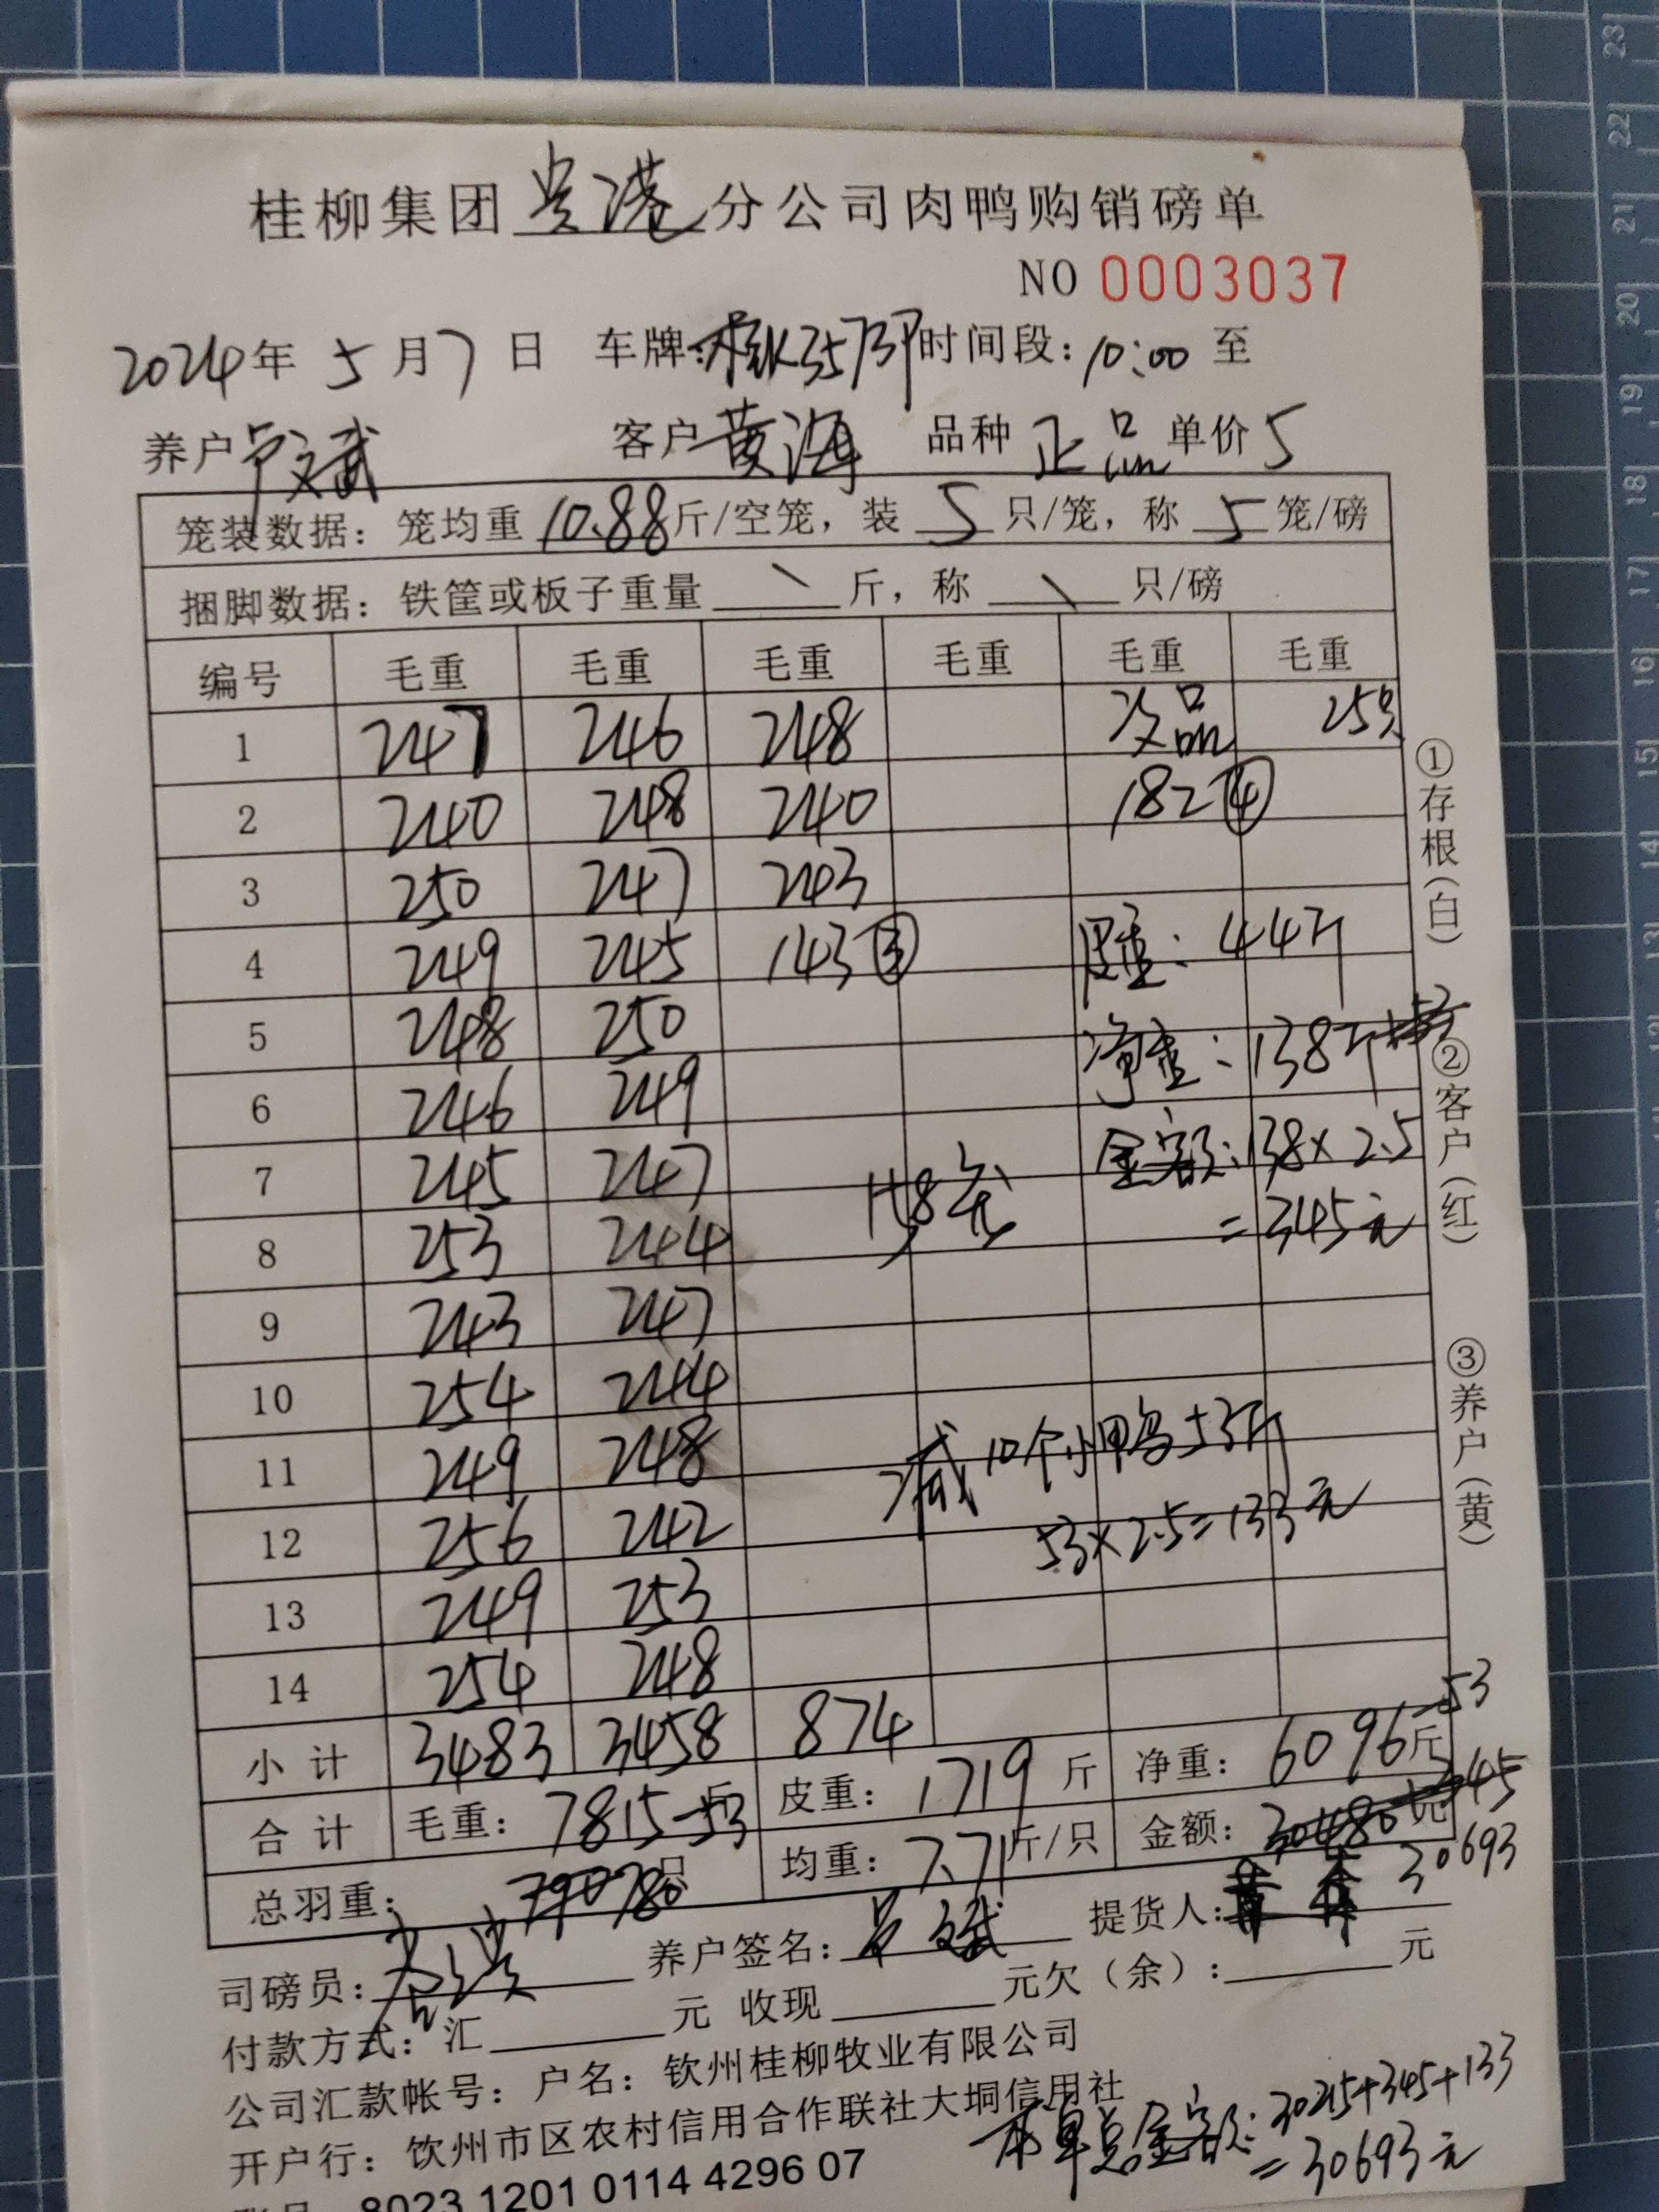 桂柳集团贵港分公司肉鸭购销磅单
NO 0003037
2024年 5月7日 车牌: 时间段:10:00 至
养户卢文武 客户黄海 品种 正品 单价5
笼装数据: 笼均重10.88斤/空笼, 装 5 只/笼, 称 5 笼/磅
捆脚数据: 铁筐或板子重量 \ 斤, 称 \ 只/磅
编号 毛重 毛重 毛重 毛重 毛重 毛重
1 247 246 248 次品 25只
2 240 248 240 182④
3 250 247 243
4 249 245 143③ 皮重:44斤
5 248 250 净重:138斤
6 246 249 金额:138×2.5
7 245 247 158笼 =345元
8 253 244
9 243 247
10 254 244
11 249 248 减10个小鸭53斤
12 256 242 53×2.5=133元
13 249 253
14 254 248
小计 3483 3458 874 皮重: 1719 斤 净重: 6096斤-53
合计 毛重: 7815-53 均重: 7.71斤/只 金额: 30480元 30693
总羽重: 790 780只
司磅员: 养户签名: 卢文武 提货人:
付款方式: 汇 元 收现 元欠(余): 元
公司汇款帐号: 户名: 钦州桂柳牧业有限公司
开户行: 钦州市区农村信用合作联社大垌信用社
本单总金额:30215+345+133
=30693元
8023 1201 0114 4296 07
①存根(白)
②客户(红)
③养户(黄)
23
22
21
20
19
18
17
16
15
14
13
12